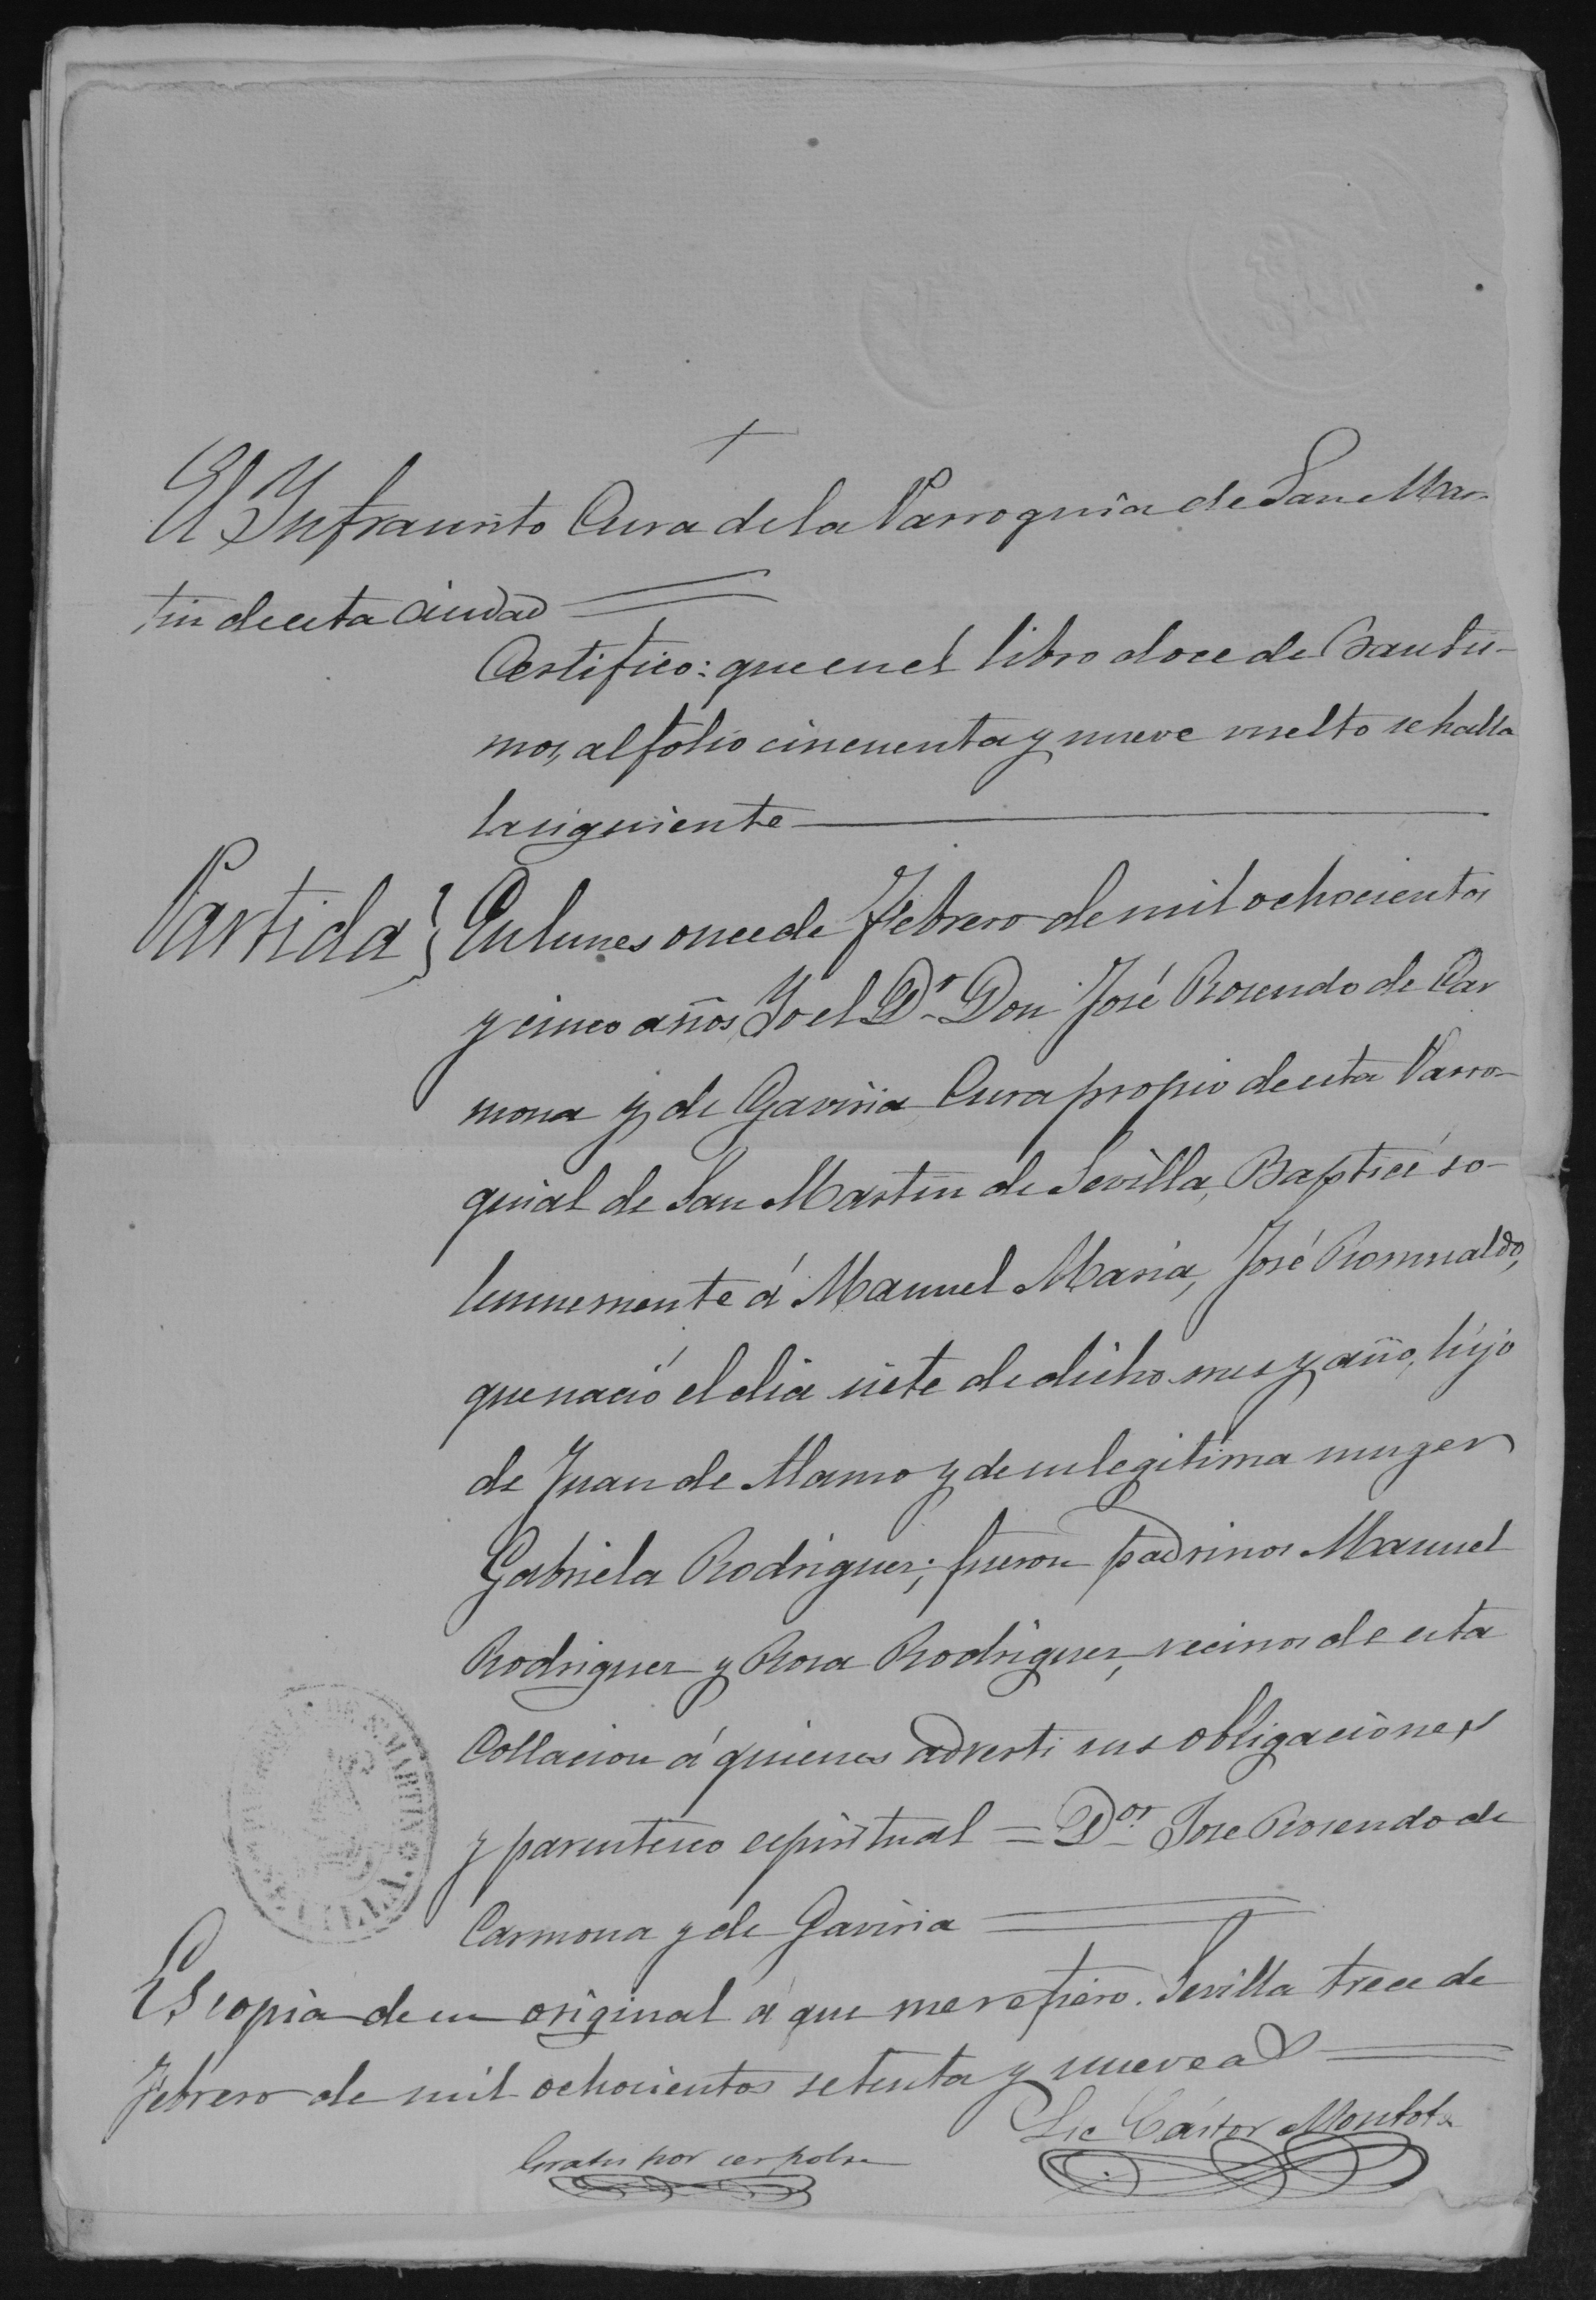 +
El Infrascrito Cura de la Parroquia de San Mar-
tin de esta Ciudad
Certifico: que en el libro doce de Bautis-
mos, al folio cincuenta y nueve vuelto se halla
la siguiente
Partida } En lunes once de Febrero de mil ochocientos
y cinco años, Yo el Dr. Don José Rosendo de Car
mona y de Gaviria Cura propio de esta Parro-
quial de San Martin de Sevilla, Bapticé so-
lennemente á Manuel Maria, José Romualdo,
que nació el dia siete de dicho mes y año, hijo
de Juan de Alamo y de su legitima muger
Gabriela Rodriguez; fueron padrinos Manuel
Rodriguez y Rosa Rodriguez, vecinos de esta
Collacion á quienes adverti sus obligaciones
y parentesco espiritual = Dor. Jose Rosendo de
Carmona y de Gaviria
Es copia de su original á que me refiero. Sevilla trece de
Febrero de mil ochocientos setenta y nueve
Lic Cástor Montoto
Gratis por ser pobre
S. MARTIN
SEVILLA